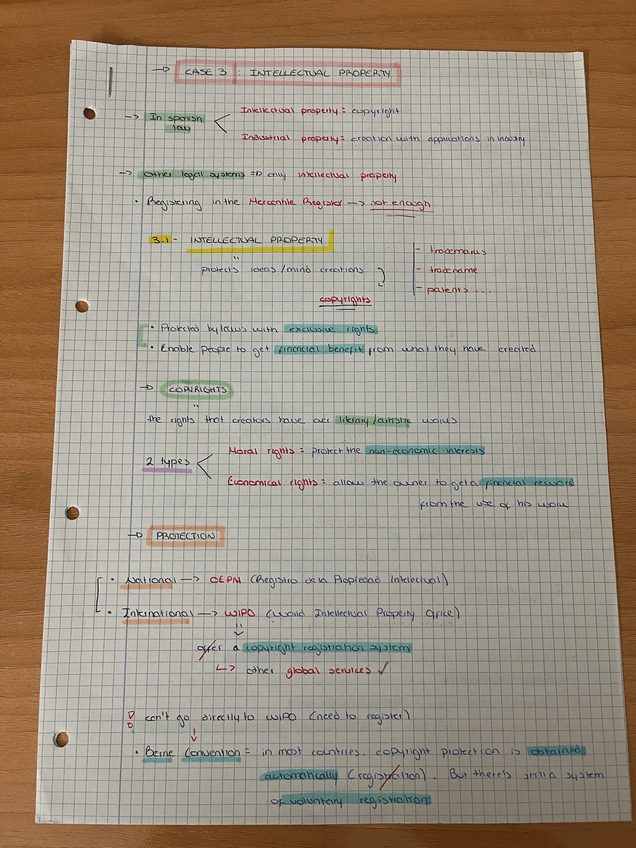 → CASE 3 : INTELLECTUAL PROPERTY
→ In spanish law < Intellectual property = copyright
Industrial property = creation with applications in industry
→ Other legal systems => only intellectual property
• Registering in the Mercantile Register → not enough
3.1 - INTELLECTUAL PROPERTY
"
protects ideas / mind creations
- trademarks
- tradename
- patents ...
copyrights
• Protected by laws with exclusive rights
• Enable people to get financial benefit from what they have created
→ COPYRIGHTS
"
the rights that creators have over literary / artistic works
2 types < Moral rights = protect the non-economic interests
Economical rights = allow the owner to get a financial reward
from the use of his work
→ PROTECTION
• National → OEPM (Registro de la Propiedad Intelectual)
• International → WIPO (World Intellectual Property Office)
"
offer a copyright registration system
↳ other global services ✓
can't go directly to WIPO (need to register)
↓
• Berne Convention = in most countries, copyright protection is obtained
automatically (registration). But there's still a system
of voluntary registration